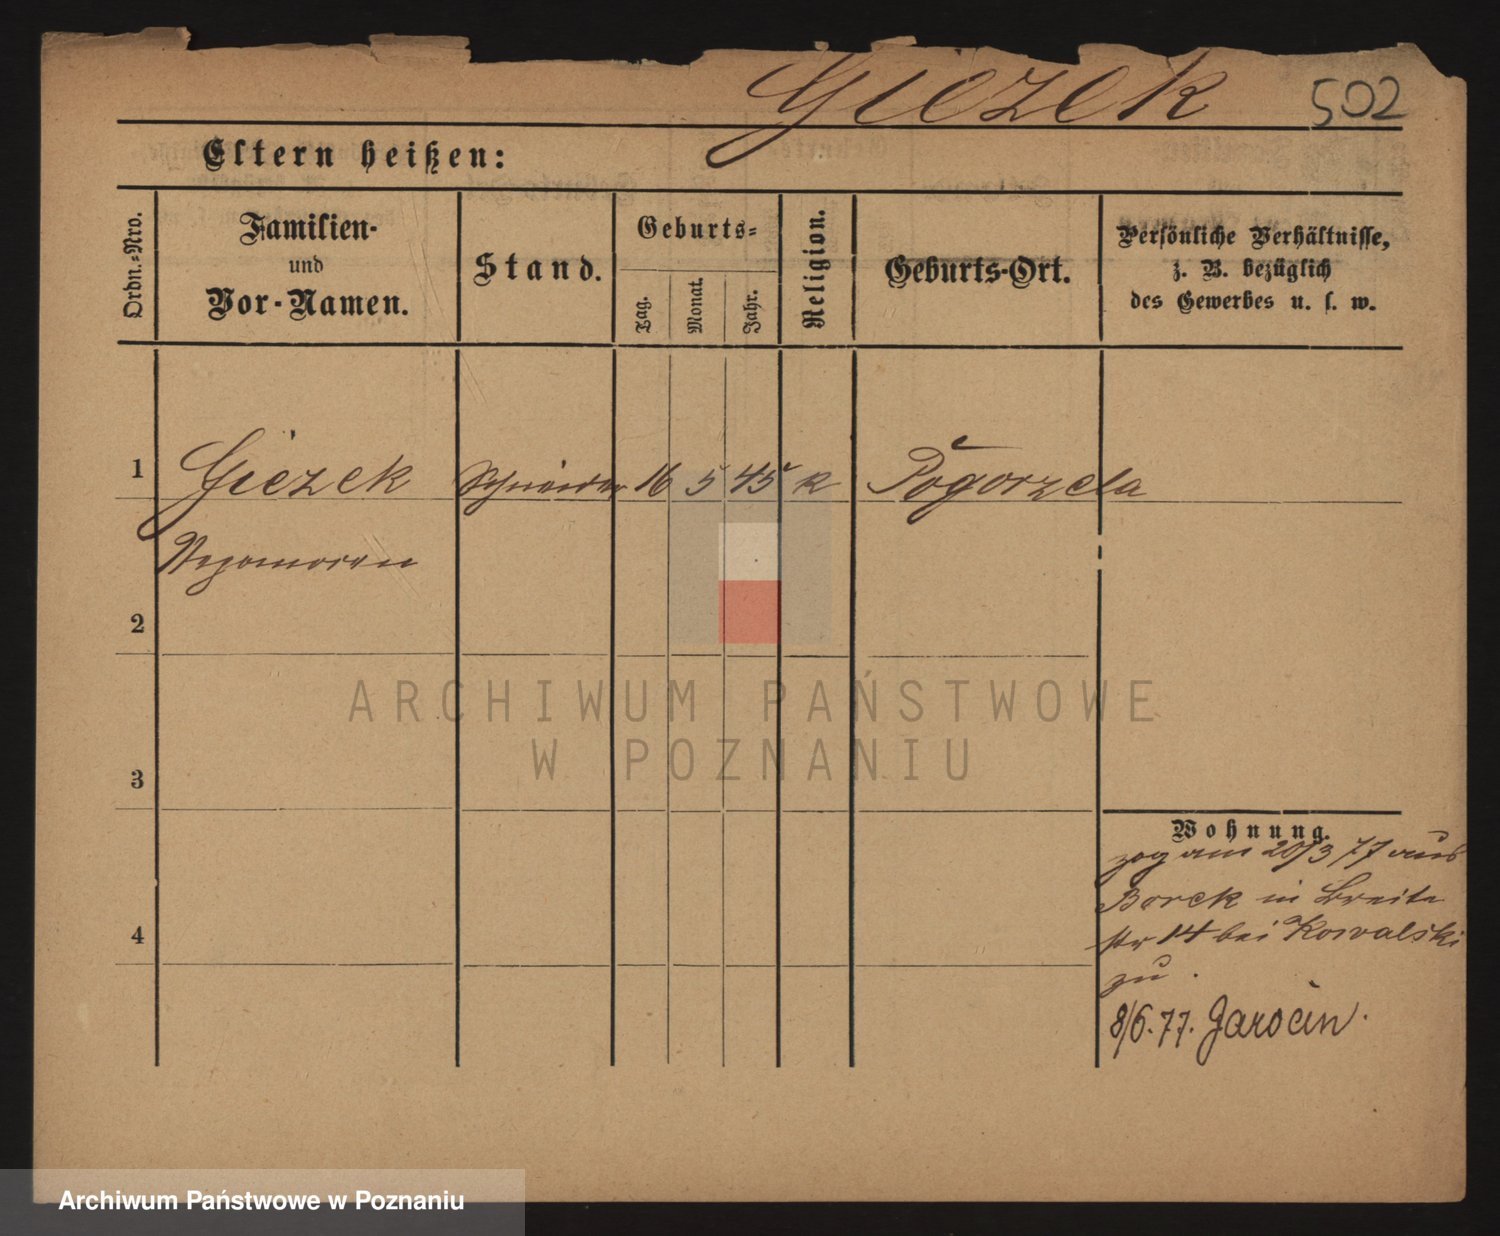 Giezek 502
Eltern heißen:
Ordn.-Nro.
Familien-
und
Vor-Namen.
Stand.
Geburts-
Tag.
Monat.
Jahr.
Religion.
Geburts-Ort.
Persönliche Verhältnisse,
z. B. bezüglich
des Gewerbes u. s. w.
1 Giezek Schneider 16 5 45 k Pogorzela
2
3
4
Wohnung.
zog am 20/3 77 aus
Borek in Breite
str 14 bei Kowalski
zu.
8/6.77. Jarocin.
ARCHIWUM PAŃSTWOWE
W POZNANIU
Archiwum Państwowe w Poznaniu